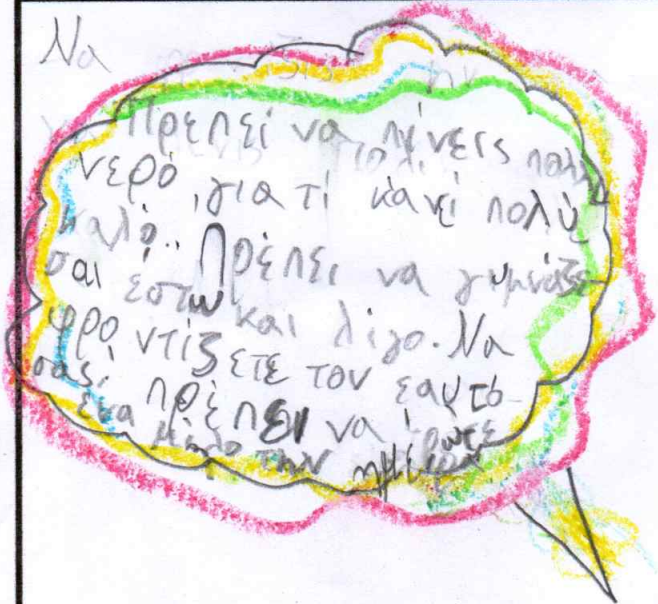 Να
Πρέπει να πίνεις πολύ
νερό, γιατί κάνει πολύ
καλό. Πρέπει να γυμνάζε-
σαι έστω και λίγο. Να
φροντίζετε τον εαυτό
σας, πρέπει να τρώτε
ένα μήλο την ημέρα